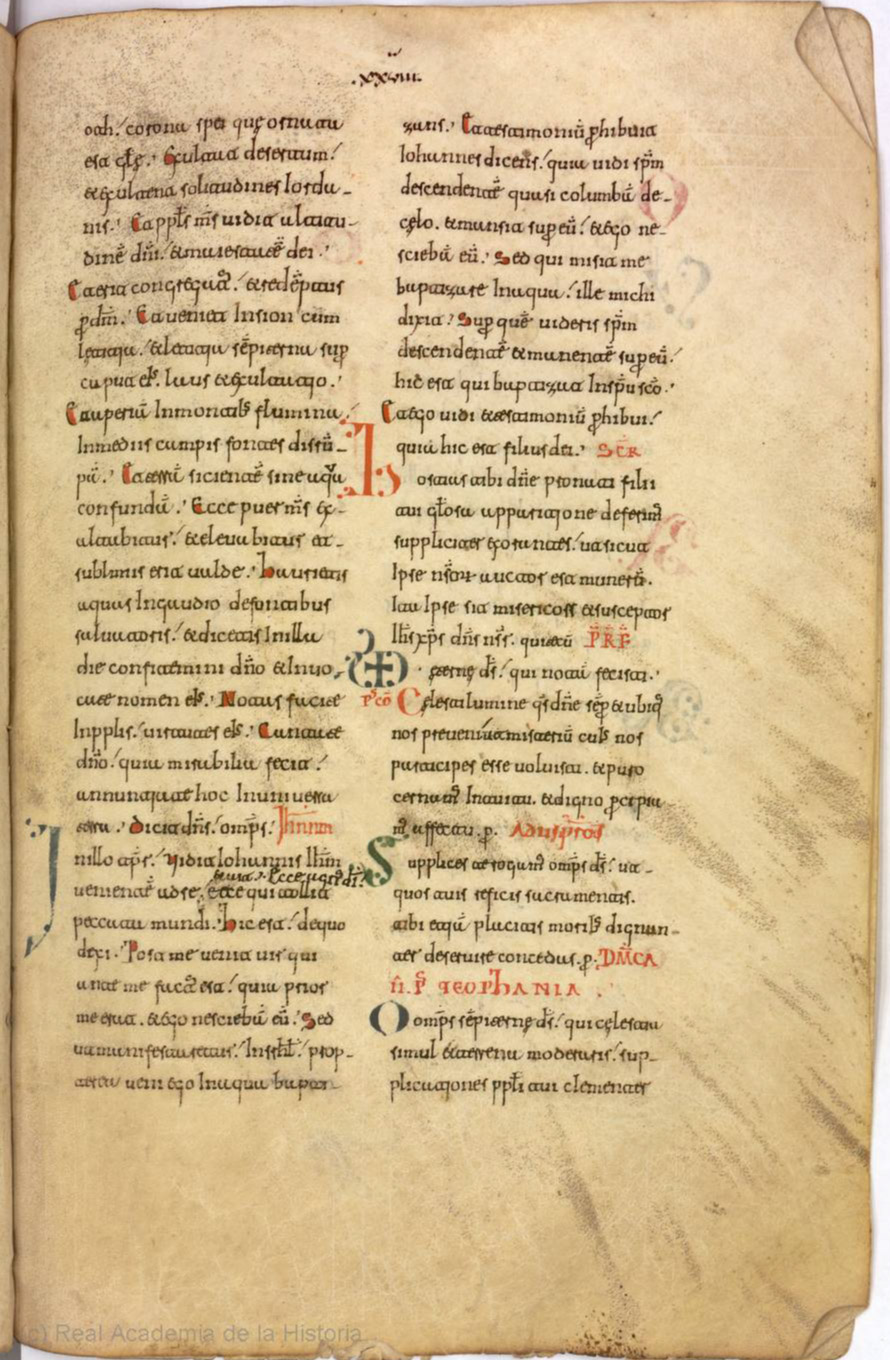 .xxviii.
oth. corona spei que ornata
est głe. Exultat desertum.
& exultent solitudines iorda-
nis. Et appłs m̄s uidit altitu-
dinē dñi. & maiestatē dei.
Et erit congregat̄. & redēptus
p dm̄. Et ueniet in sion cum
letitia. & letitia sēpiterna sup
caput ei'. laus & exultatio.
Et aperiā in montib' flumina.
In mediis campis fontes disrū-
pā. Et terrā sicientē sine aqua
confundā. Ecce puer m̄s ex-
altabitur. & eleuabitur et-
sublimis erit ualde. haurietis
aquas in gaudio de fontibus
saluatoris. & dicetis in illa
die confitemini dn̄o & inuo-
cate nomen ei'. Notas facite
in ppłis. uirtutes ei'. Cantate
dn̄o. quia mirabilia fecit.
annuntiate hoc in uniuersa
terra. Dicit dn̄s. omp̄s. Iohnnm
In illo tp̄r. Vidit iohannis ihm̄
uenientē ad se. ecce qui tollit
& ait. Ecce agn' di.
peccata mundi. hic est. de quo
dixi. Post me uenit uir qui
ante me fact̄ est. quia prior
me erat. & ego nesciebā eū. Sed
ut manifestaretur. In isrł. prop-
terea ueni ego in aqua bapti-
zans. Et testimoniū phibuit
iohannes dicens. quia uidi spm̄
descendentē quasi columbā de-
celo. & mansit sup eū. & ego ne-
sciebā eū. Sed qui misit me
baptizare in aqua. ille michi
dixit. Sup quē uideris spm̄
descendentē & manentē sup eū.
hic est qui baptizat in spu sc̄o.
Et ego uidi & testimoniū phibui.
quia hic est filius dei. SCR
hostias tibi dn̄e pro nati filii
tui gl̄osa apparitione deferim'
suppliciter exorantes. ut sicut
ipse nr̄or auctor est munerū.
Ita ipse sit misericors & susceptor
ih̄s xp̄s dn̄s nr̄s. qui tecū PRF
eterne ds̄. qui notā fecisti.
PSCŌ Celesti lumine qs dn̄e sēp & ubiq
nos preueni ut misteriū cui' nos
participes esse uoluisti. & puro
cernam' intuitu. & digno pcipia-
m' affectu. p. AD UISPROS
Supplices te rogam' omp̄s ds̄. ut-
quos tuis reficis sacramentis.
tibi etiā placitis morib' dignan-
ter deseruire concedas. p. DM̄CA
I. P' TEOPHANIA.
Omp̄s sēpiterne ds̄. qui celestia
simul & terrena moderaris. sup-
plicationes ppłi tui clementer
(c) Real Academia de la Historia